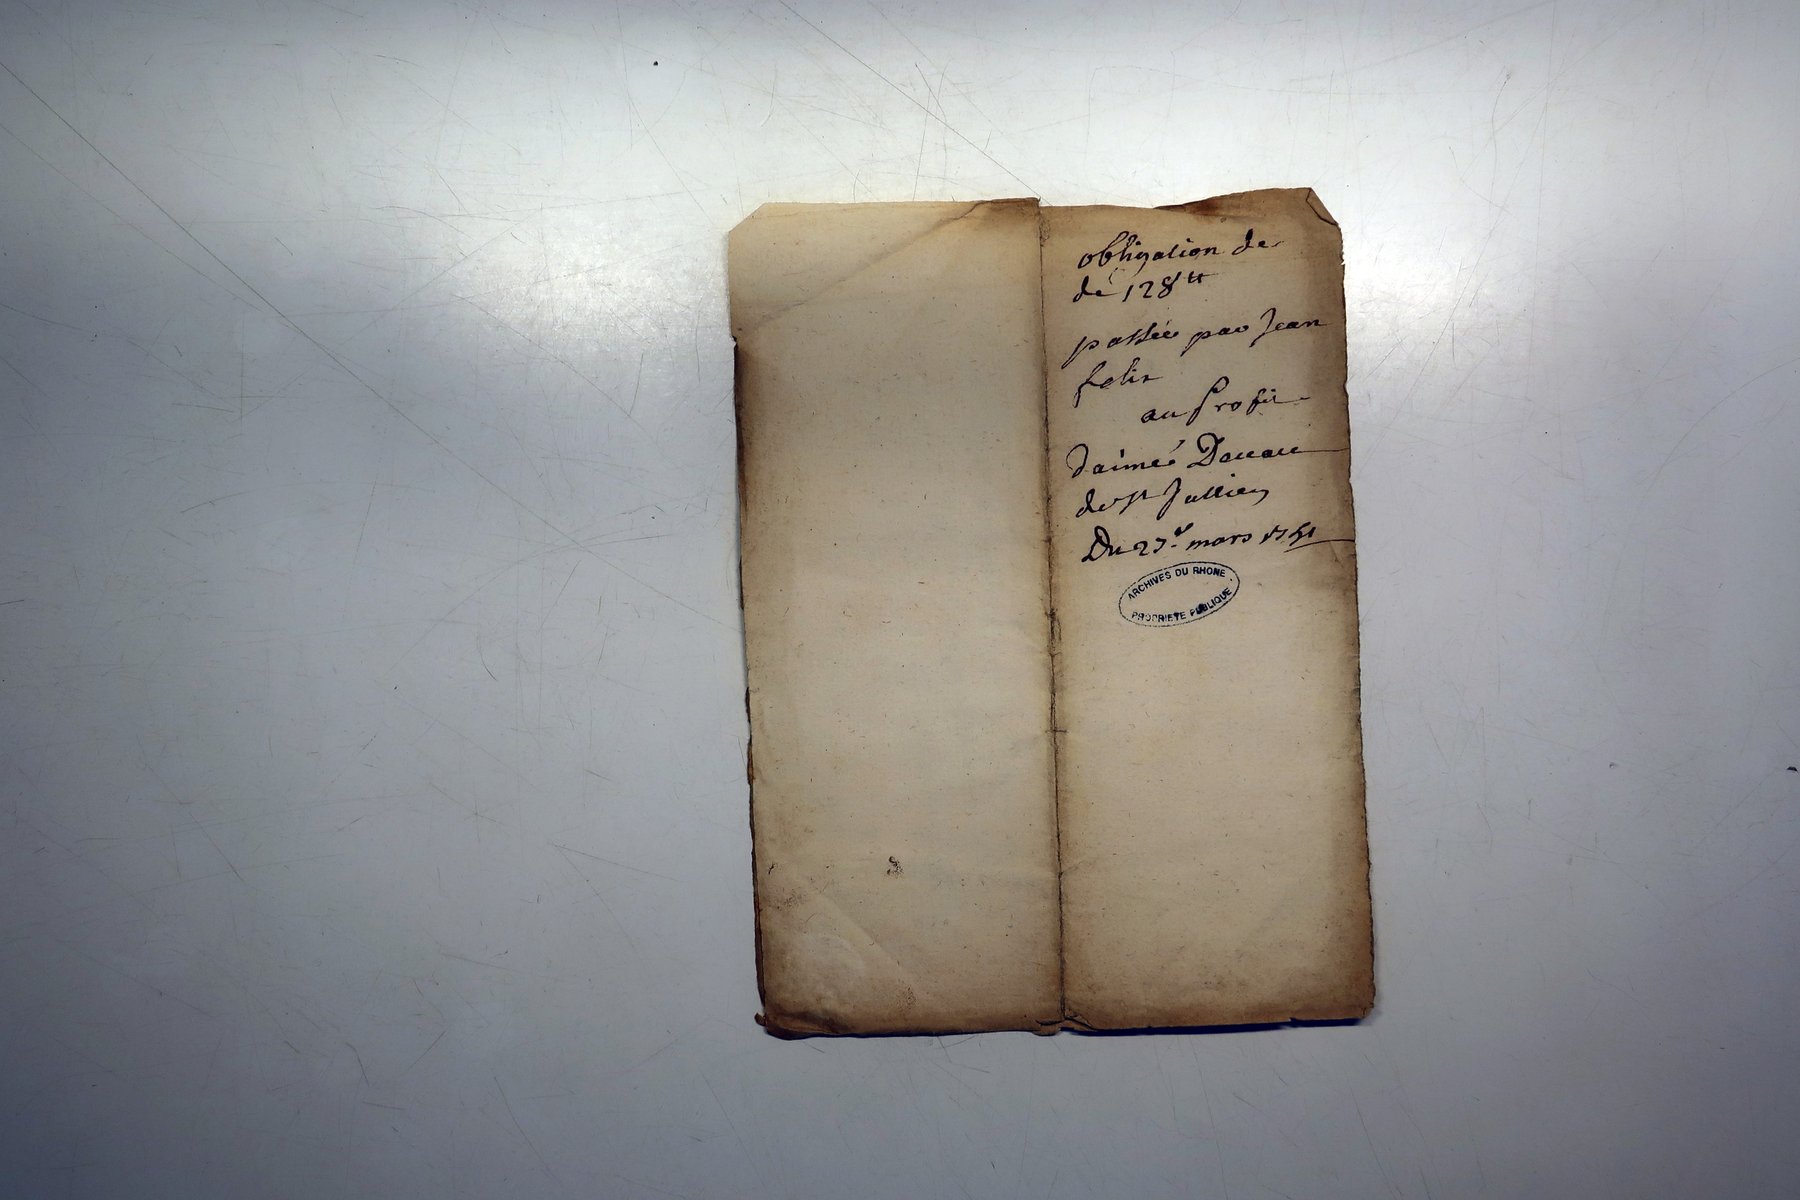 obligation de
de 128 tt
passée par Jean
felix
au Profit
d'aimé
de st Jullien
Du 27e mars
ARCHIVES DU RHONE
PROPRIETE PUBLIQUE